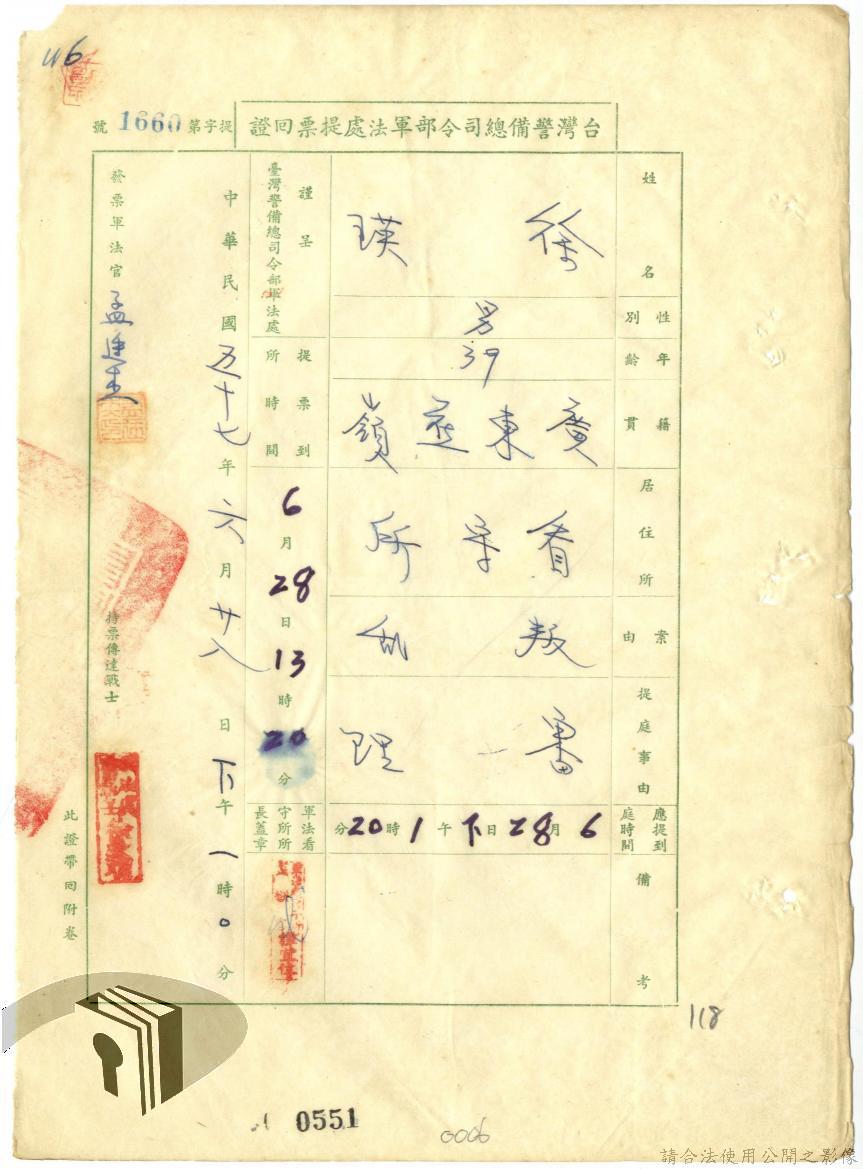 116
台灣警備總司令部軍法處提票回證
提字第1660號
姓名 徐瑛
性別 男
年齡 39
籍貫 廣東蕉嶺
居住所 看守所
案由 叛亂
提庭事由 審理
應提到庭時間 6月28日下午1時20分
備考
謹呈
臺灣警備總司令部軍法處
提票到所時間 6月28日13時20分
軍法看守所所長蓋章
中華民國五十七年六月廿八日下午一時0分
發票軍法官
持票傳達戰士
此證帶回附卷
118
0551
0006
請合法使用公開之影像